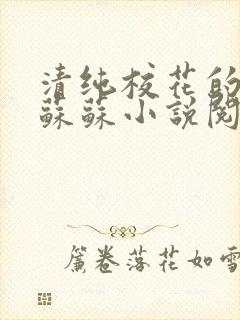 清纯校花的
蘇蘇小說閱
簾卷落花如雪